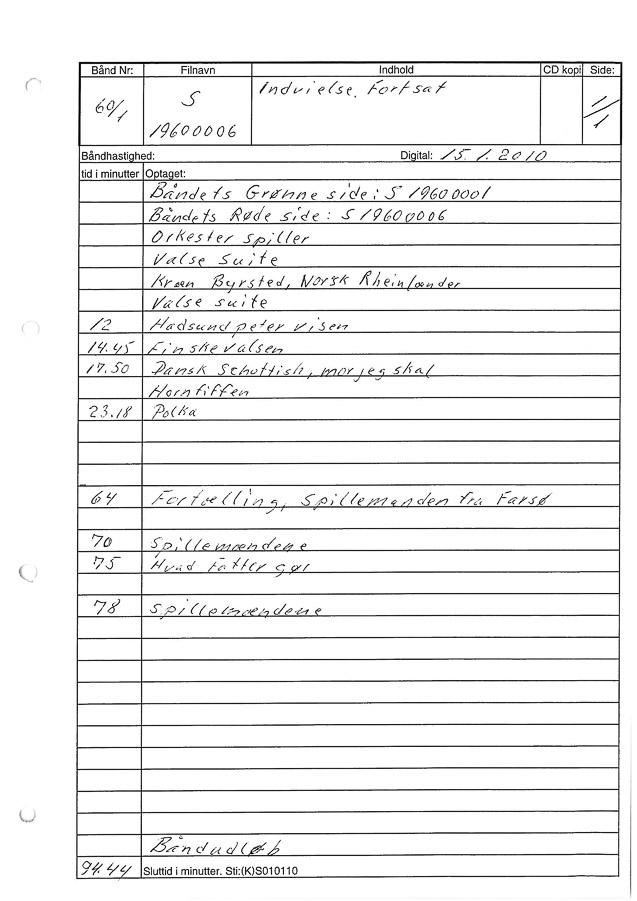 Bånd Nr: Filnavn Indhold CD kopi Side:
60/1 S 19600006 Indvielse. Fortsat 1/1
Båndhastighed: Digital: 15.1.2010
tid i minutter Optaget:
Båndets Grønne side: S 19600001
Båndets Røde side: S 19600006
Orkester spiller
Valse Suite
Kræn Byrsted, Norsk Rheinlænder
Valse suite
12 Hadsund peter visen
14.45 Finske valsen
17.50 Dansk Schottish, mor jeg skal
Hornfiffen
23.18 Polka
64 Fortælling, Spillemanden fra Farsø
70 Spillemændene
75 Hvad Fatter gør
78 Spillemændene
Båndudløb
94.44 Sluttid i minutter. Sti:(K)S010110